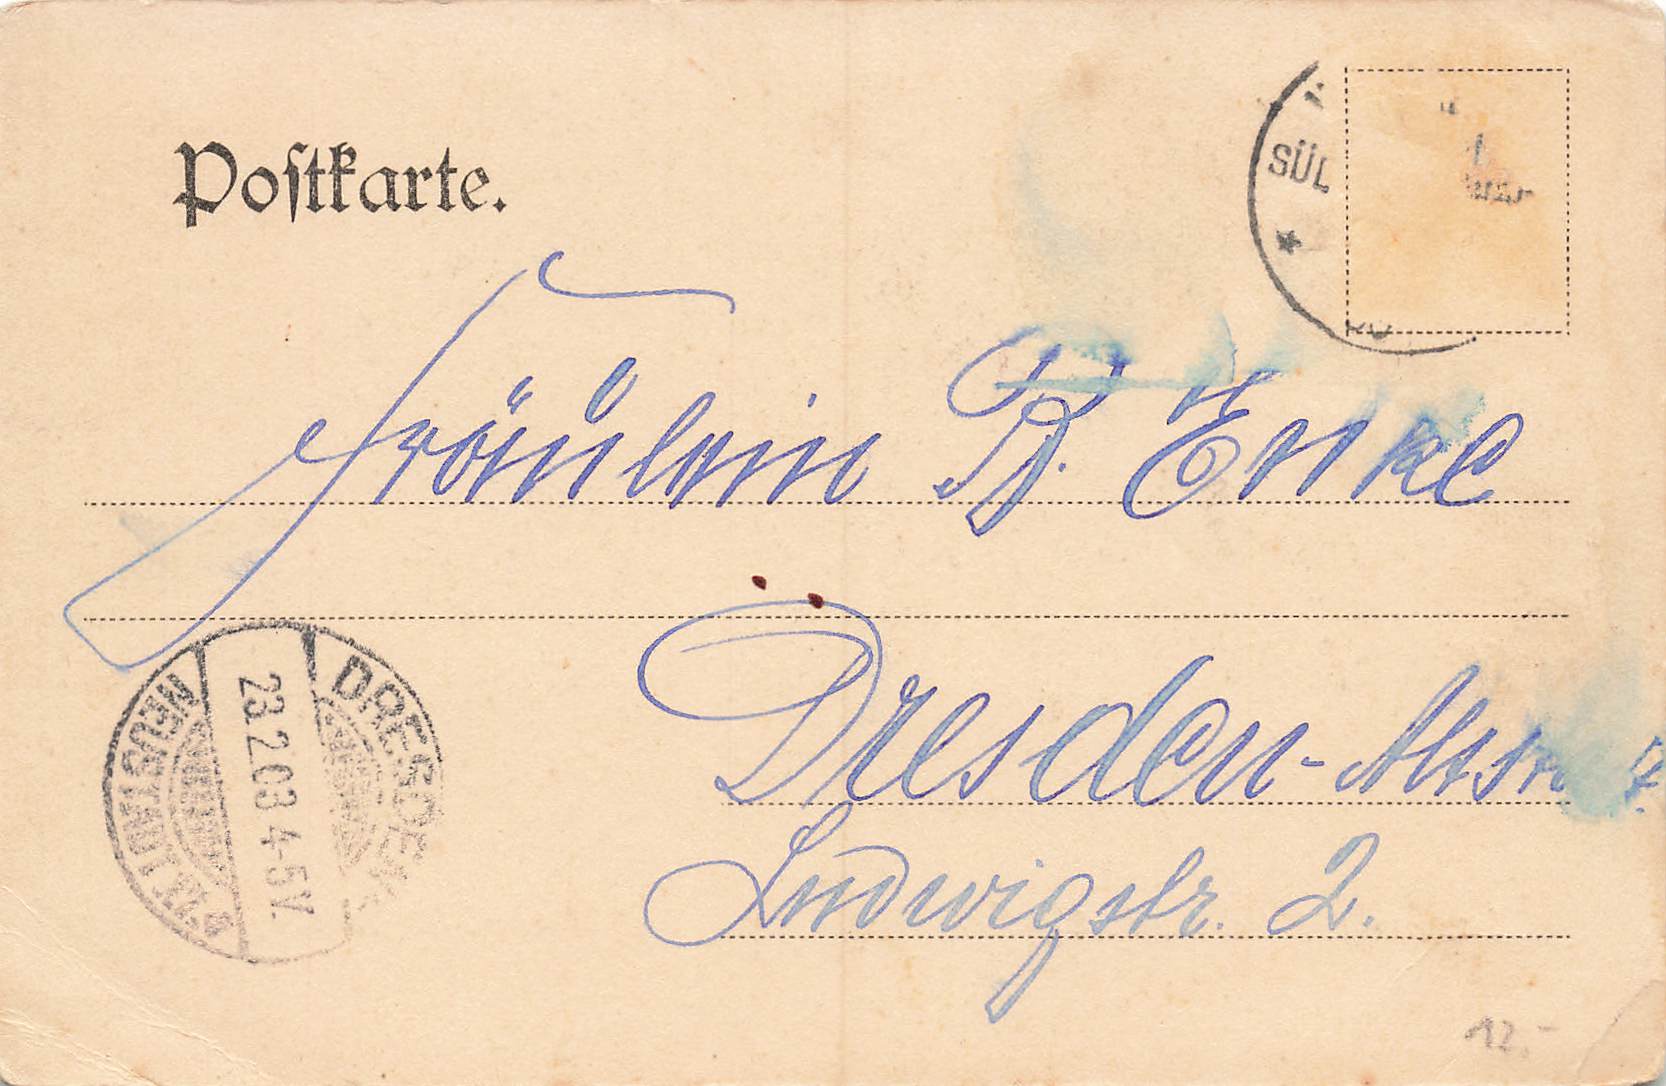 Postkarte.
SÜL
Fräulein D. Enke
Dresden-Altst
Ludwigstr. 2.
DRESDEN
23.2.03 4-5V
NEUSTADT
12.-